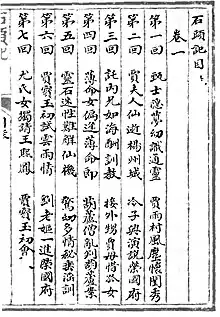 石頭記目
卷一
第一回 甄士隱夢幻識通靈 賈雨村風塵懷閨秀
第二回 賈夫人仙逝楊州城 冷子興演說榮國府
第三回 託內兄如海酬訓教 接外甥賈母惜孤女
第四回 薄命女偏逢薄命郎 葫蘆僧亂判葫蘆案
第五回 靈石迷性難解仙機 警幻多情秘垂淫訓
第六回 賈寶玉初試雲雨情 劉老嫗一進榮國府
第七回 尤氏女獨請王熙鳳 賈寶玉初會